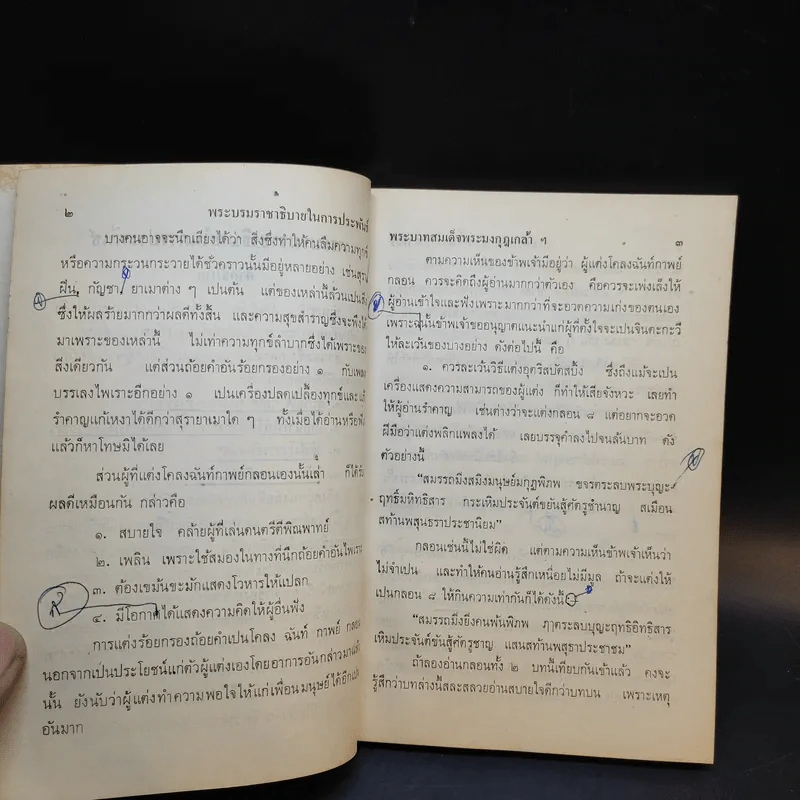 ๒ พระบรมราชาธิบายในการประพันธ์
บางคนอาจจะนึกเถียงได้ว่า สิ่งซึ่งทำให้คนลืมความทุกข์
หรือความกระวนกระวายได้ชั่วคราวนั้นมีอยู่หลายอย่าง เช่นสุรา
ฝิ่น, กัญชา, ยาเมาต่าง ๆ เป็นต้น แต่ของเหล่านี้ล้วนเป็น
ซึ่งให้ผลร้ายมากกว่าผลดีทั้งสิ้น และความสุขสำราญซึ่งจะพึงได้
มาเพราะของเหล่านี้ ไม่เท่าความทุกข์ลำบากซึ่งได้เพราะของ
สิ่งเดียวกัน แต่ส่วนถ้อยคำอันร้อยกรองอย่าง ๑ กับเพลง
บรรเลงไพเราะอีกอย่าง ๑ เป็นเครื่องปลดเปลื้องทุกข์และแก้
รำคาญแก้เหงาได้ดีกว่าสุรายาเมาใด ๆ ทั้งเมื่อได้อ่านหรือฟัง
แล้วก็หาโทษมิได้เลย
ส่วนผู้ที่แต่งโคลงฉันท์กาพย์กลอนเองนั้นเล่า ก็ได้รับ
ผลดีเหมือนกัน กล่าวคือ
๑. สบายใจ คล้ายผู้ที่เล่นดนตรีดีพิณพาทย์
๒. เพลิน เพราะใช้สมองในทางที่นึกถ้อยคำอันไพเราะ
๓. ต้องเขม้นขะมักแสดงโวหารให้แปลก
๔. มีโอกาสได้แสดงความคิดให้ผู้อื่นฟัง
การแต่งร้อยกรองถ้อยคำเป็นโคลง ฉันท์ กาพย์ กลอน
นอกจากเป็นประโยชน์แก่ตัวผู้แต่งเองโดยอาการอันกล่าวมาแล้ว
นั้น ยังนับว่าผู้แต่งทำความพอใจให้แก่เพื่อนมนุษย์ได้อีกเป็น
อันมาก
พระบาทสมเด็จพระมงกุฎเกล้า ฯ ๓
ตามความเห็นของข้าพเจ้ามีอยู่ว่า ผู้แต่งโคลงฉันท์กาพย์
กลอน ควรจะคิดถึงผู้อ่านมากกว่าตัวเอง คือควรจะเพ่งเล็งให้
ผู้อ่านเข้าใจและฟังเพราะมากกว่าที่จะอวดความเก่งของตนเอง
เพราะฉนั้นข้าพเจ้าขออนุญาตแนะนำแก่ผู้ที่ตั้งใจจะเป็นจินตะกะวี
ให้ละเว้นของบางอย่าง ดังต่อไปนี้ คือ
๑. ควรละเว้นวิธีแต่งอุตริสบัดสบิ้ง ซึ่งถึงแม้จะเป็น
เครื่องแสดงความสามารถของผู้แต่ง ก็ทำให้เสียจังหวะ เลยทำ
ให้ผู้อ่านรำคาญ เช่นต่างว่าจะแต่งกลอน ๘ แต่อยากจะอวด
ฝีมือว่าแต่งพลิกแพลงได้ เลยบรรจุคำลงไปจนล้นบาท ดัง
ตัวอย่างนี้
“สมรรถมิ่งสมิงมนุษย์มกุฎพิภพ ขจรตระลบพระบุญะ-
ฤทธิ์มหิทธิสาร กระเหิมประจันต์ขยันสู้ศัตรูชำนาญ สเมือน
สท้านพสุนธราประชานิยม”
กลอนเช่นนี้ไม่ใช่ผิด แต่ตามความเห็นข้าพเจ้าเห็นว่า
ไม่จำเป็น และทำให้คนอ่านรู้สึกเหนื่อยไม่มีมูล ถ้าจะแต่งให้
เป็นกลอน ๘ ให้กินความเท่ากันก็ได้ดังนี้
“สมรรถมิ่งยิ่งคนพ้นพิภพ ภาตระลบบุญะฤทธิอิทธิสาร
เหิมประจันต์ขันสู้ศัตรูชาญ แสนสท้านพสุธาประชาชม”
ถ้าลองอ่านกลอนทั้ง ๒ บทนี้เทียบกันเข้าแล้ว คงจะ
รู้สึกว่าบทล่างนี้สละสลวยอ่านสบายใจดีกว่าบทบน เพราะเหตุ